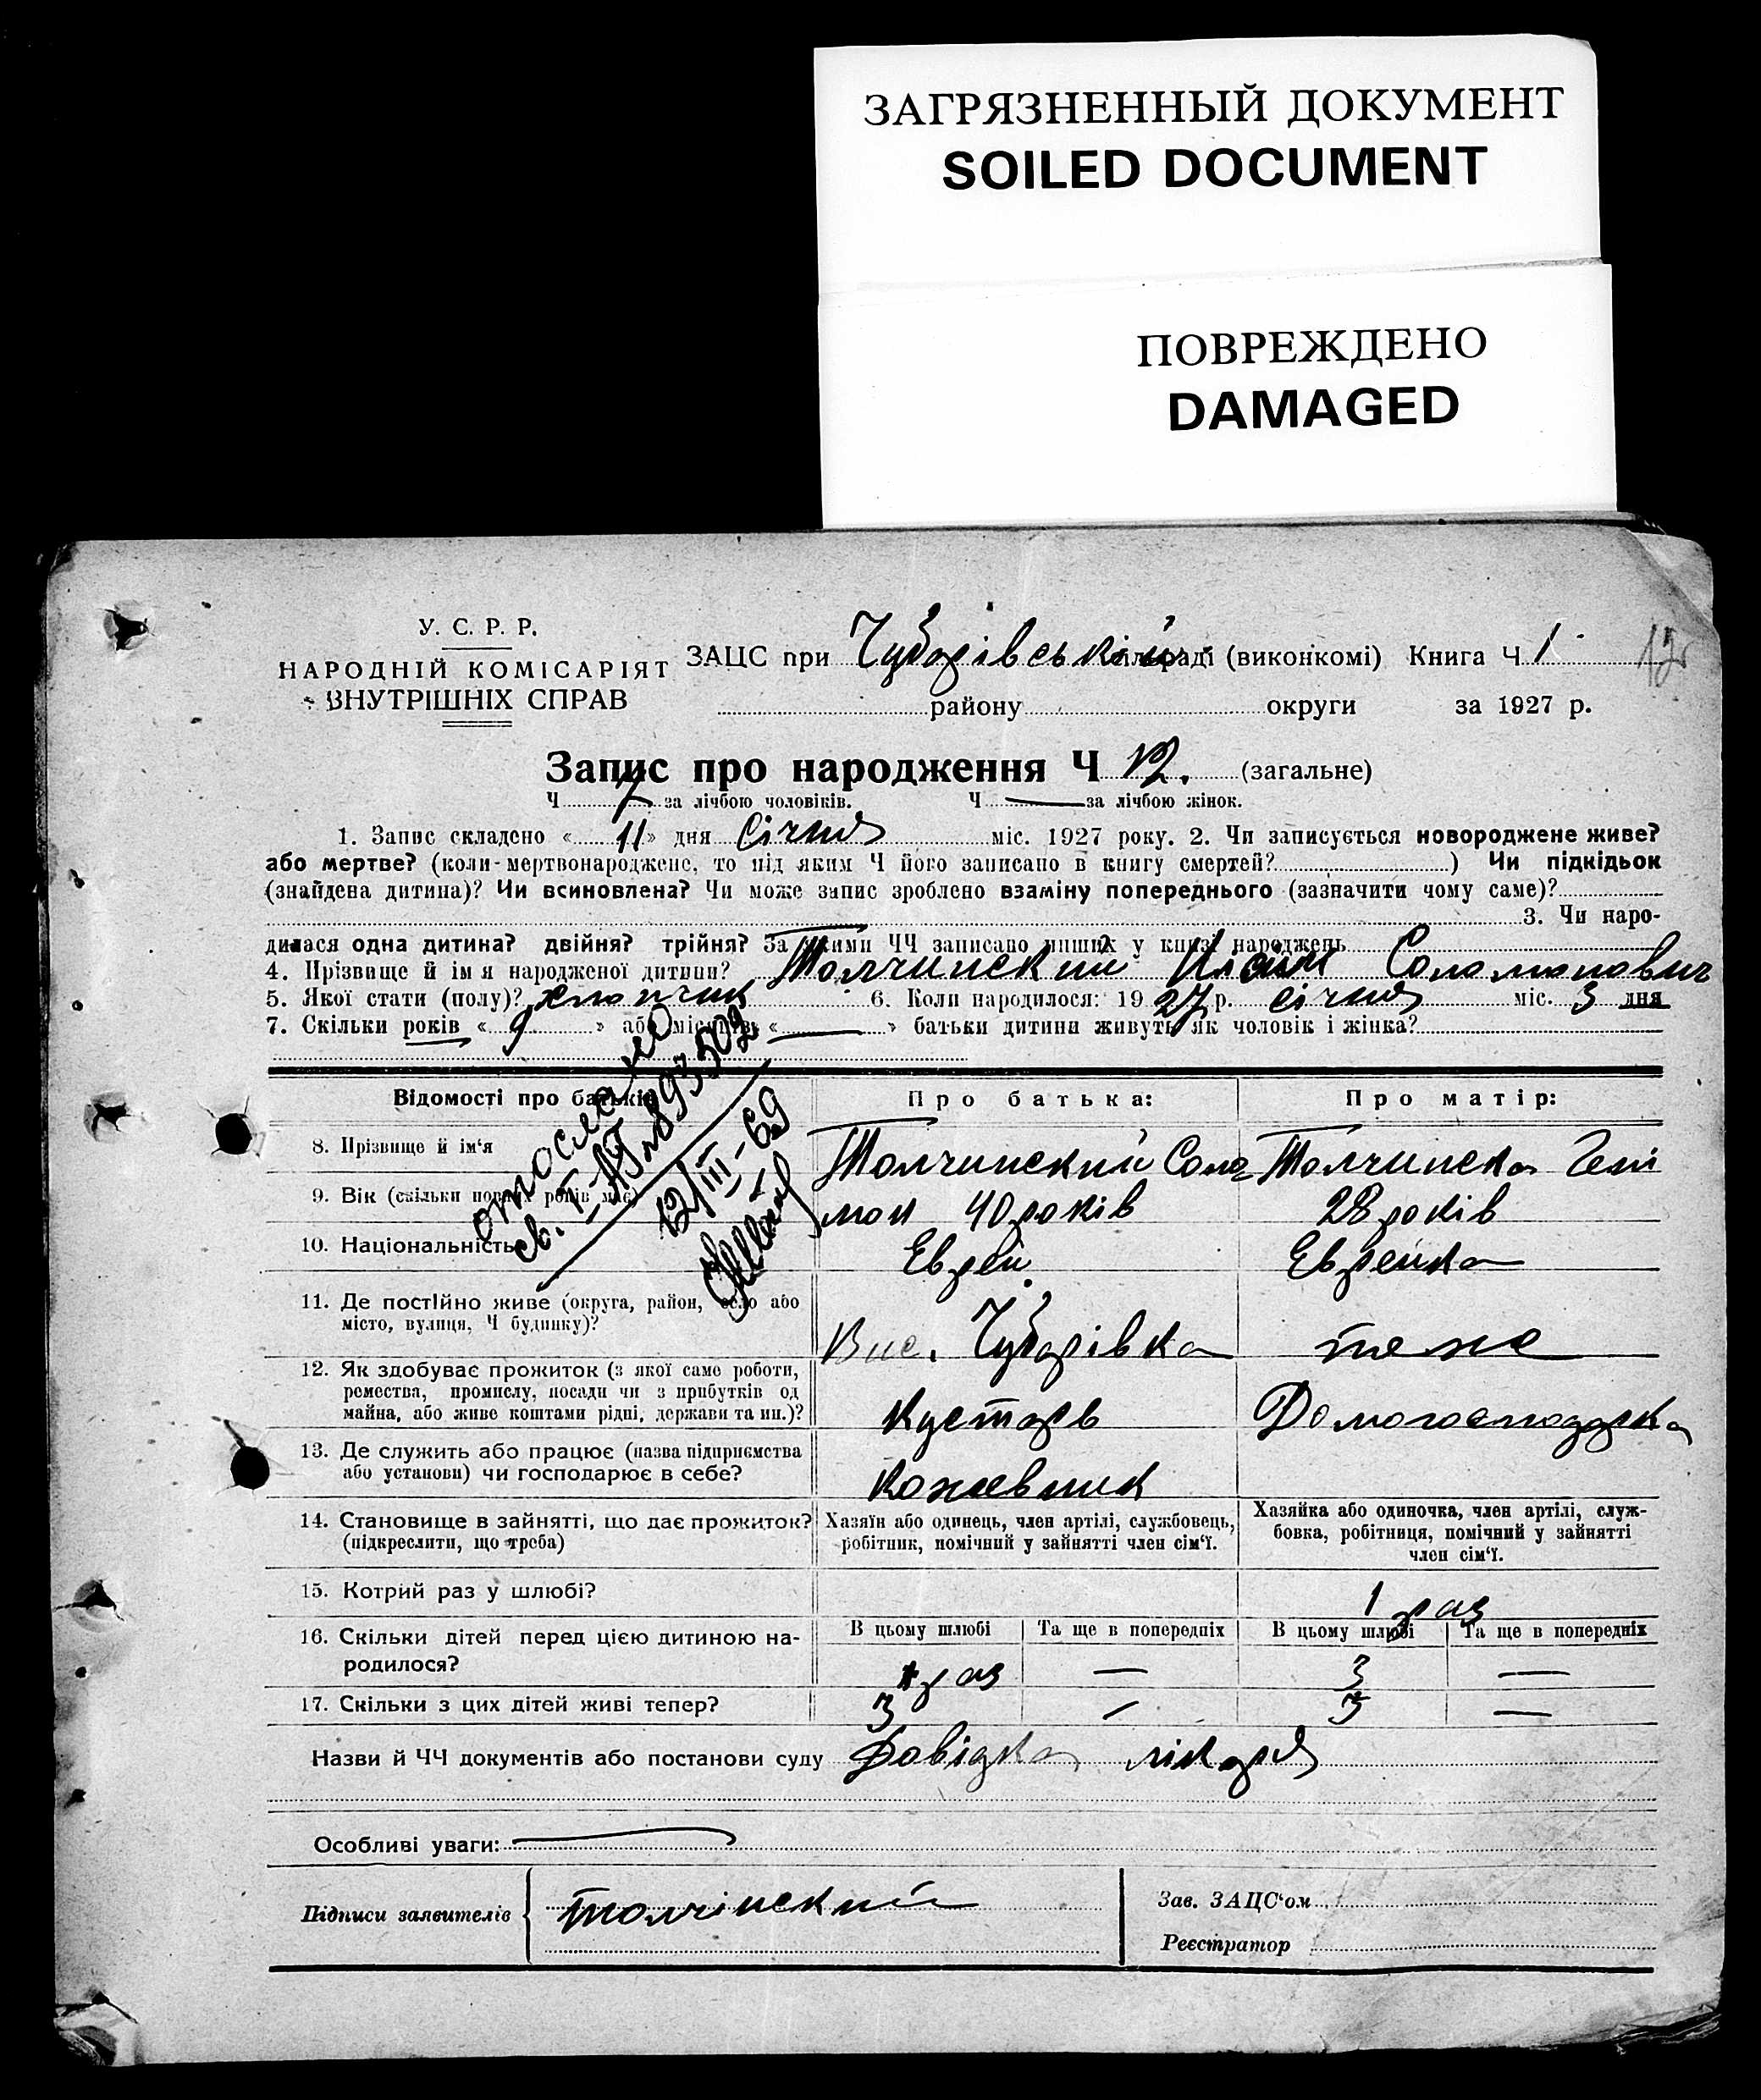 ЗАГРЯЗНЕННЫЙ ДОКУМЕНТ
SOILED DOCUMENT
ПОВРЕЖДЕНО
DAMAGED
У. С. Р. Р.
НАРОДНІЙ КОМІСАРІЯТ
ВНУТРІШНІХ СПРАВ
ЗАЦС при Чубарівській сільраді (виконкомі) Книга Ч 1
12
району округи за 1927 р.
Запис про народження Ч 12. (загальне)
Ч 7 за лічбою чоловіків. Ч — за лічбою жінок.
1. Запис складено « 11 » дня Січня міс. 1927 року. 2. Чи записується новороджене живе?
або мертве? (коли-мертвонароджене, то під яким Ч його записано в книгу смертей? ) Чи підкідьок
(знайдена дитина)? Чи всиновлена? Чи може запис зроблено взаміну попереднього (зазначити чому саме)?
3. Чи наро-
дилася одна дитина? двійня? трійня? За якими ЧЧ записано инших у книзі народжень
4. Прізвище й ім я народженої дитини? Толчинский Соломонович
5. Якої стати (полу)? хлопчик 6. Коли народилося: 19 27 р. січня міс. 3 дня
7. Скільки років « 9 » або місяців « — » батьки дитини живуть як чоловік і жінка?
отослано
св. 893502
12/III-69
Відомості про батьків Про батька: Про матір:
8. Прізвище й ім‘я Толчинский Соло Толчинска
9. Вік (скільки повних років має) мон 40 років 28 років
10. Національність Еврей Еврейка
11. Де постійно живе (округа, район, село або
місто, вулиця, Ч будинку)? Вис. Чубарівка теже
12. Як здобуває прожиток (з якої саме роботи,
ремества, промислу, посади чи з прибутків од
майна, або живе коштами рідні, держави та ин.)? Кустарь Домогосподарка
13. Де служить або працює (назва підприємства
або установи) чи господарює в себе? Кожевник
14. Становище в зайнятті, що дає прожиток?
(підкреслити, що треба)
Хазяїн або одинець, член артілі, службовець,
робітник, помічний у зайнятті член сім‘ї.
Хазяйка або одиночка, член артілі, служ-
бовка, робітниця, помічний у зайнятті
член сім‘ї.
15. Котрий раз у шлюбі? 1 раз
16. Скільки дітей перед цією дитиною на-
родилося?
В цьому шлюбі Та ще в попередніх В цьому шлюбі Та ще в попередніх
1 раз — 3 —
17. Скільки з цих дітей живі тепер? 3 — 3 —
Назви й ЧЧ документів або постанови суду Довідка лікаря
Особливі уваги:
Підписи заявителів Толчінский
Зав. ЗАЦС‘ом
Реєстратор